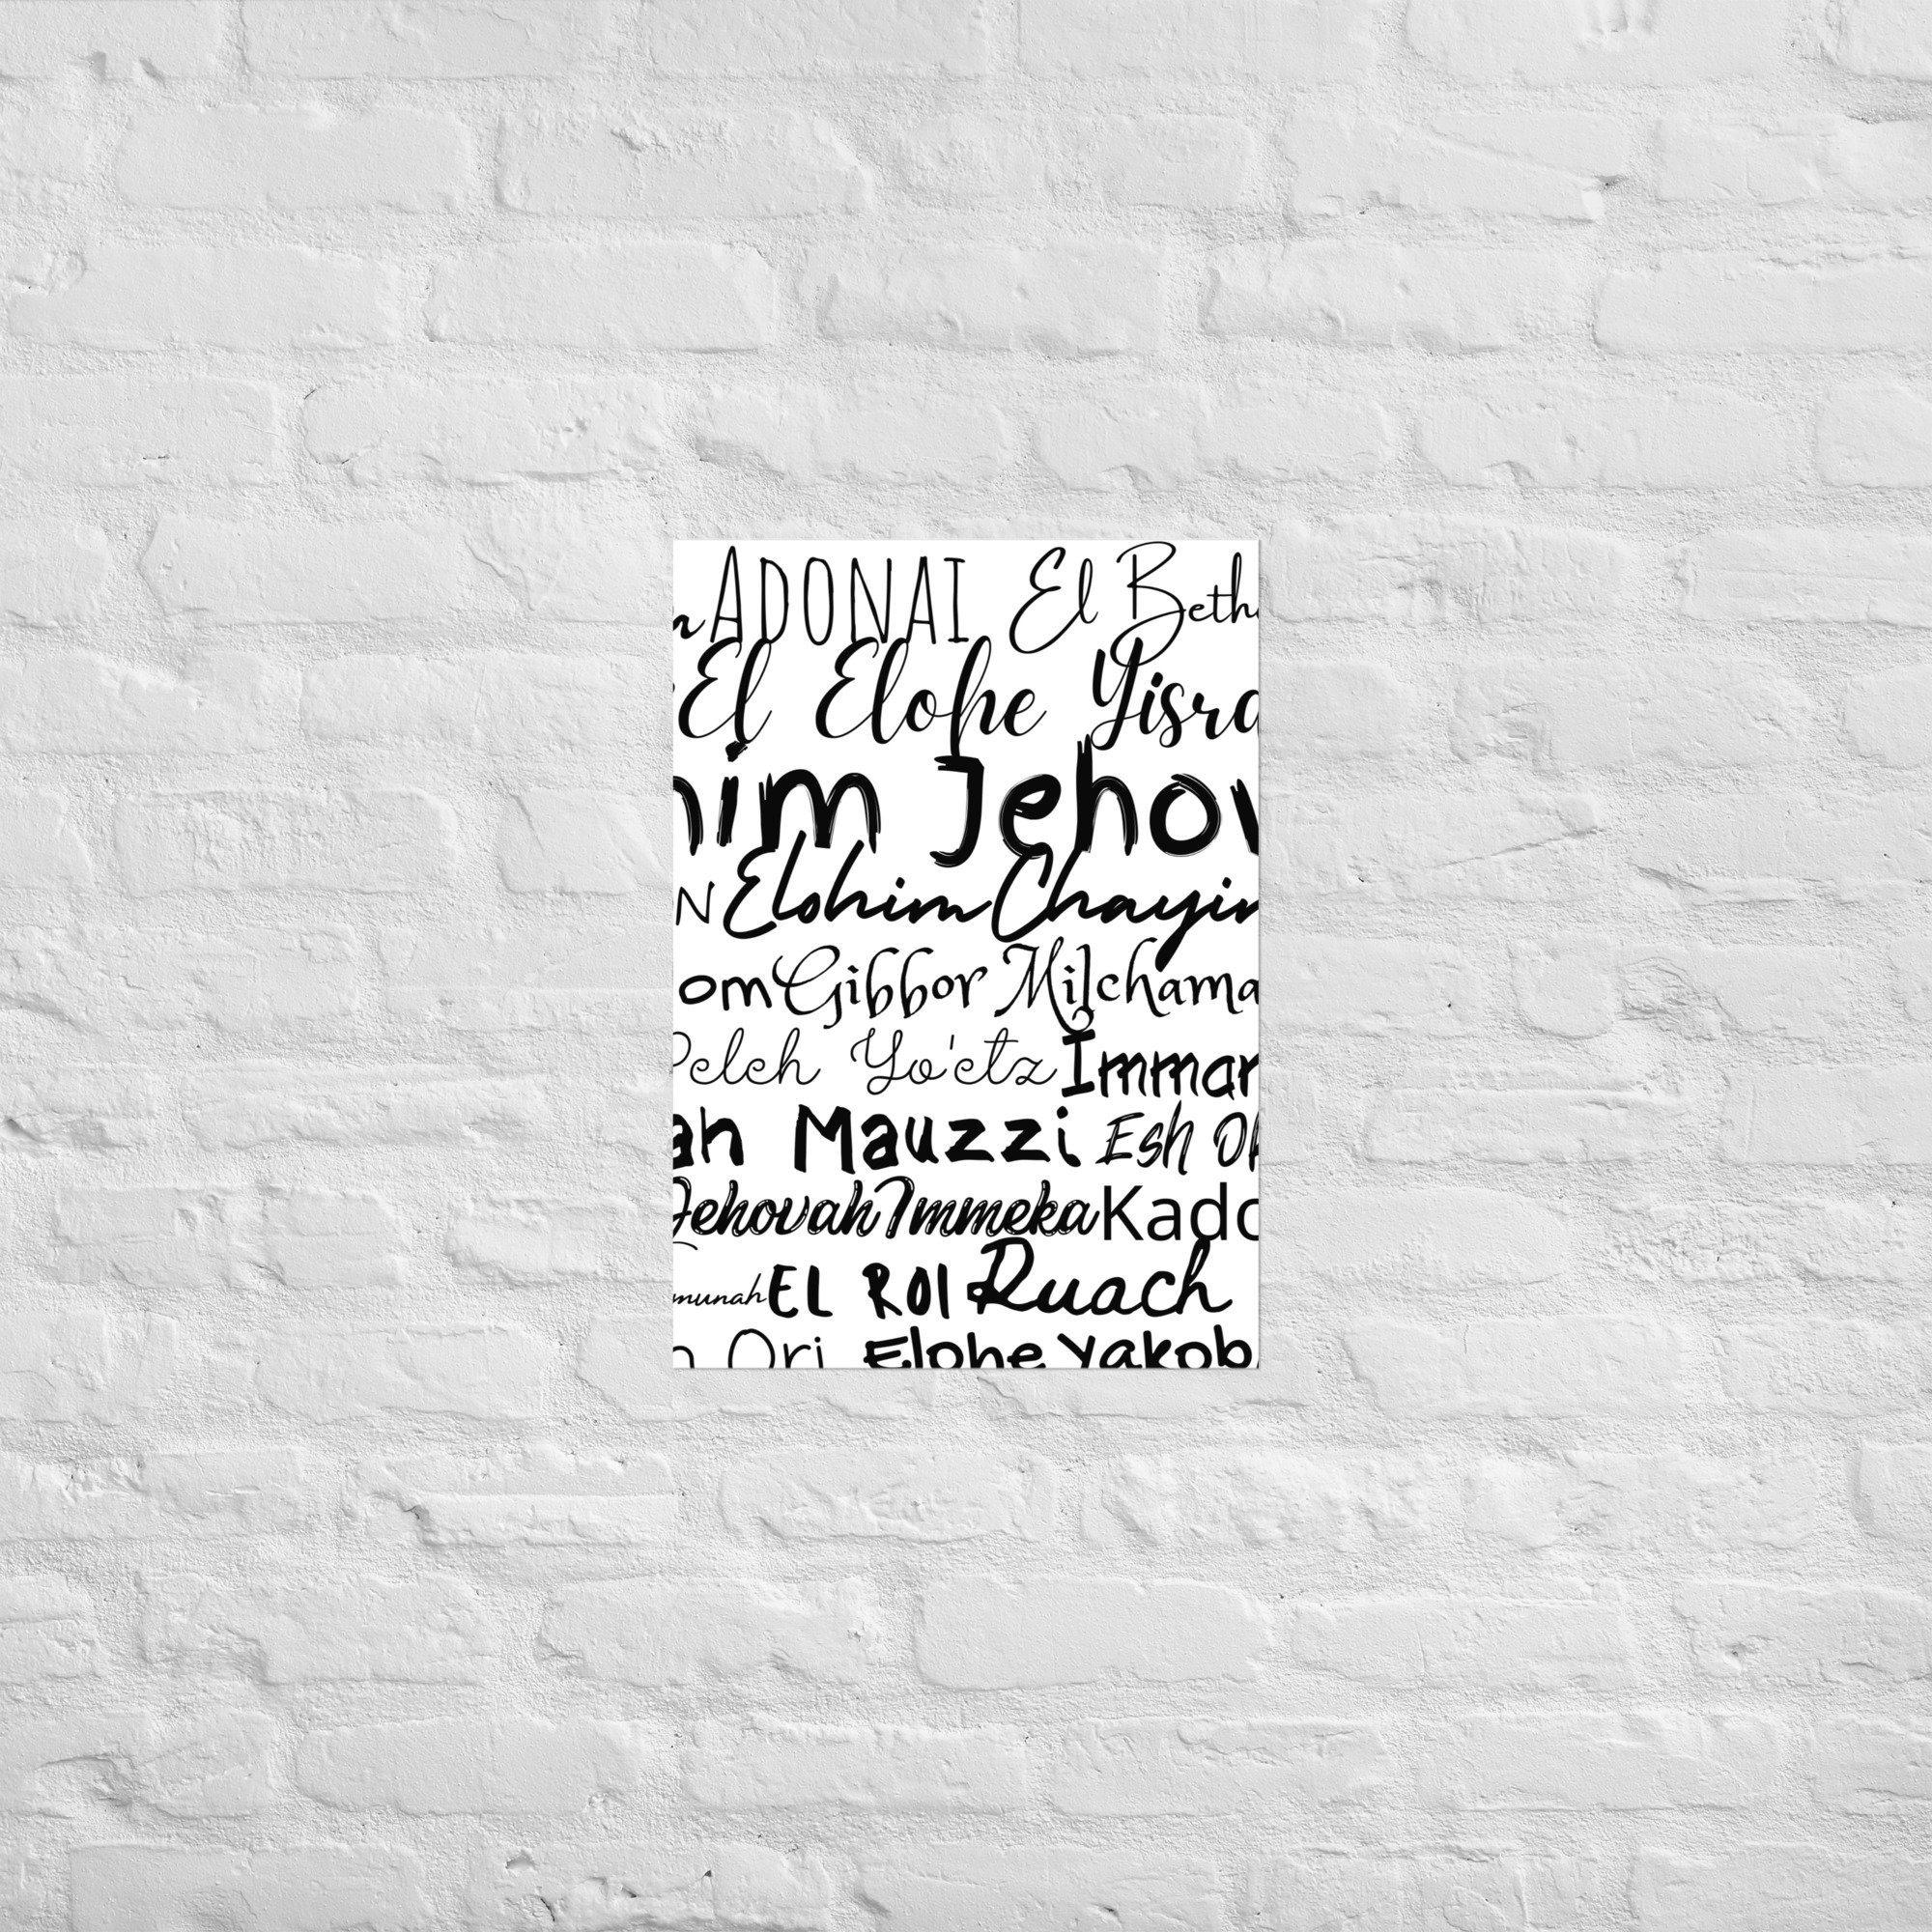 ADONAI El Beth
El Elohe Yisra
him Jehov
N Elohim Chayim
om Gibbor Milchama
Peleh Yo'etz Imman
ah Mauzzi Esh O
Jehovah Immeka Kado
munah EL ROI Ruach
Ori Elohe Yakob